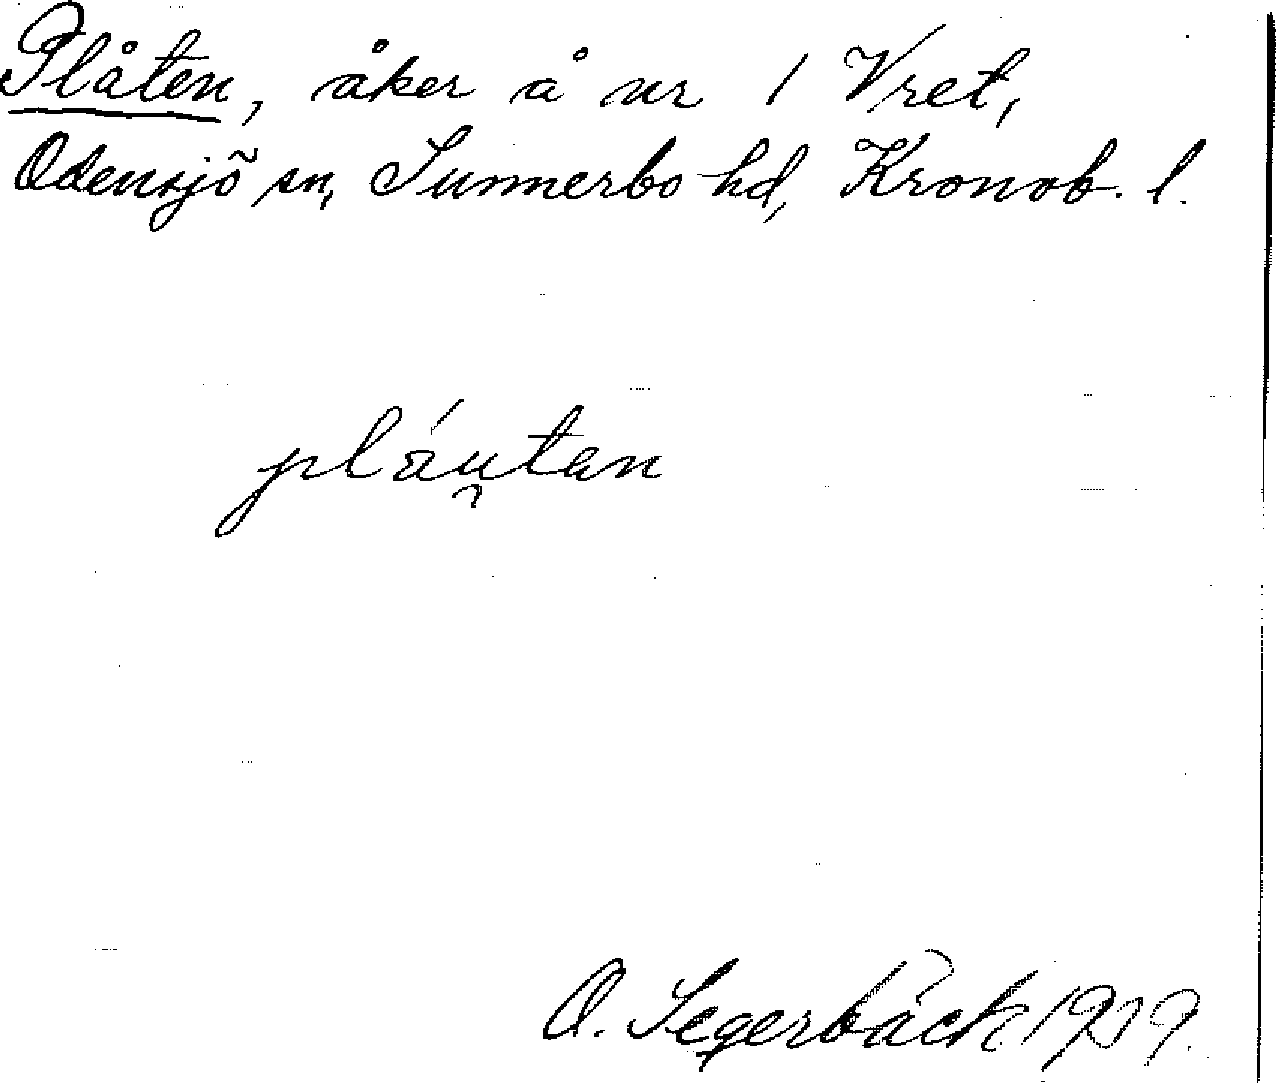 Plåten, åker å nr 1 Vret,
Odensjö sn, Sunnerbo hd, Kronob. l.
pláu̯tan
O. Segerbäck 1919.